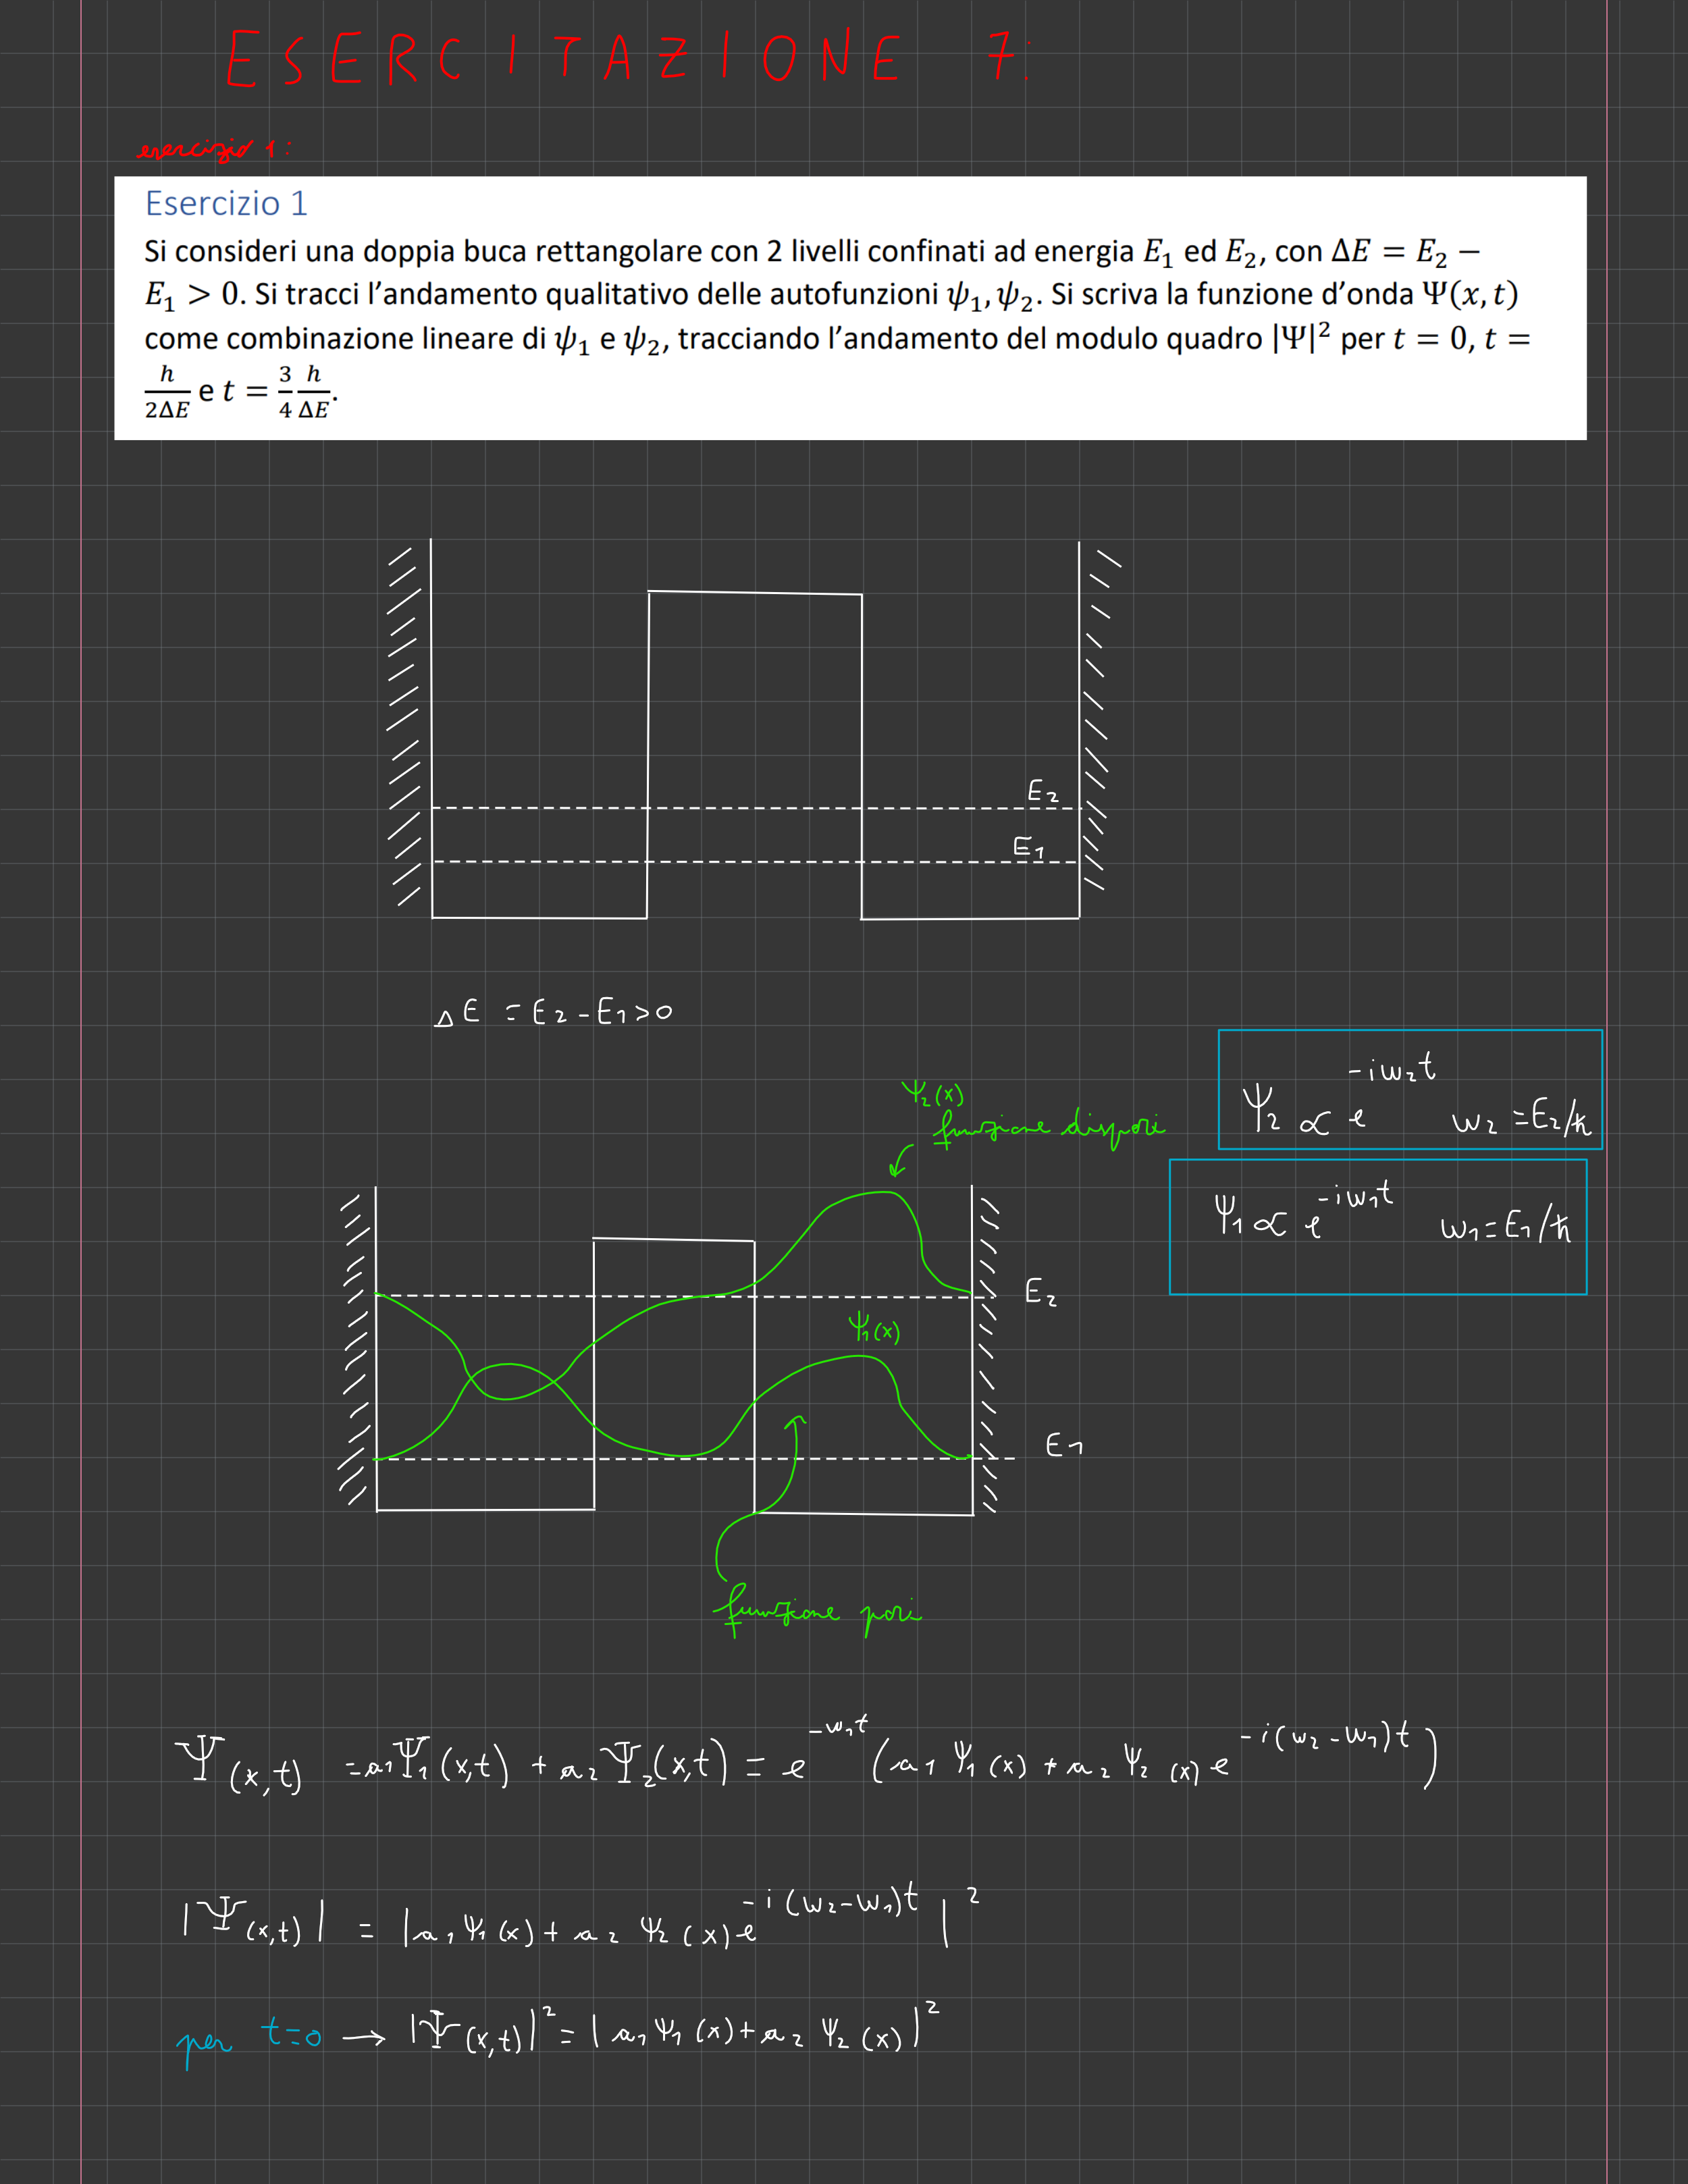 ESERCITAZIONE 7:
esercizio 1:
Esercizio 1
Si consideri una doppia buca rettangolare con 2 livelli confinati ad energia E₁ ed E₂, con ΔE = E₂ −
E₁ > 0. Si tracci l’andamento qualitativo delle autofunzioni ψ₁, ψ₂. Si scriva la funzione d’onda Ψ(x, t)
come combinazione lineare di ψ₁ e ψ₂, tracciando l’andamento del modulo quadro |Ψ|² per t = 0, t =
h/2ΔE e t = 3/4 h/ΔE.
E₂
E₁
ΔE = E₂ - E₁ > 0
Ψ₂(x)
funzione dispari
Ψ₂ ∝ e^(-iω₂t) ω₂ = E₂/ħ
Ψ₁ ∝ e^(-iω₁t) ω₁ = E₁/ħ
E₂
Ψ₁(x)
E₁
funzione pari
Ψ(x,t) = a₁Ψ₁(x,t) + a₂Ψ₂(x,t) = e^(-ω₁t) (a₁Ψ₁(x) + a₂Ψ₂(x) e^(-i(ω₂-ω₁)t))
|Ψ(x,t)| = |a₁Ψ₁(x) + a₂Ψ₂(x) e^(-i(ω₂-ω₁)t)|²
per t=0 → |Ψ(x,t)|² = |a₁Ψ₁(x) + a₂Ψ₂(x)|²